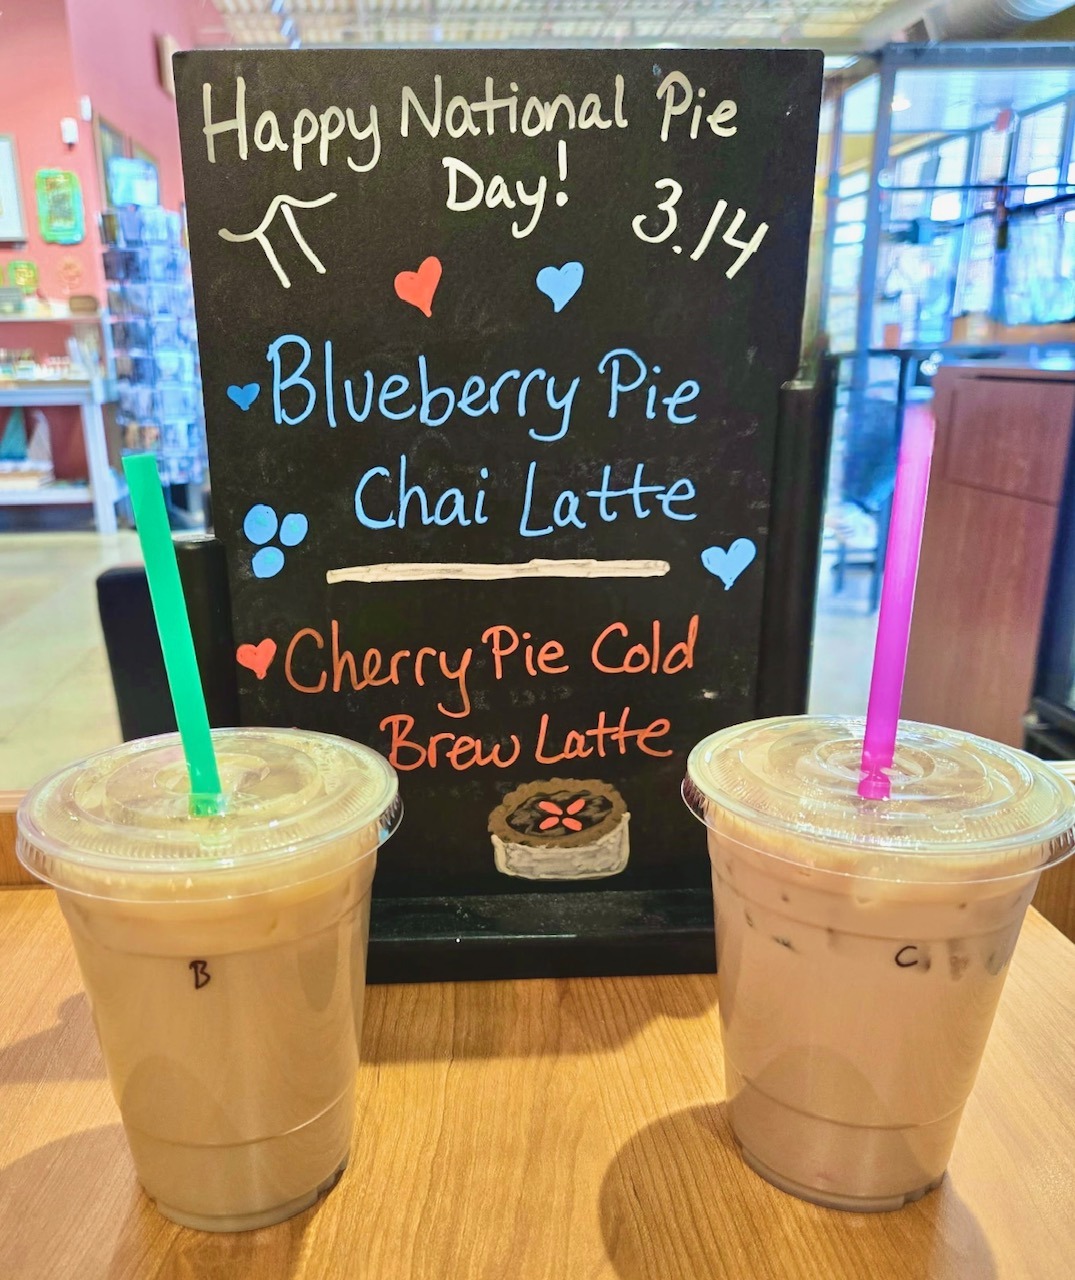 Happy National Pie
Day!
π 3.14
Blueberry Pie
Chai Latte
Cherry Pie Cold
Brew Latte
B
C